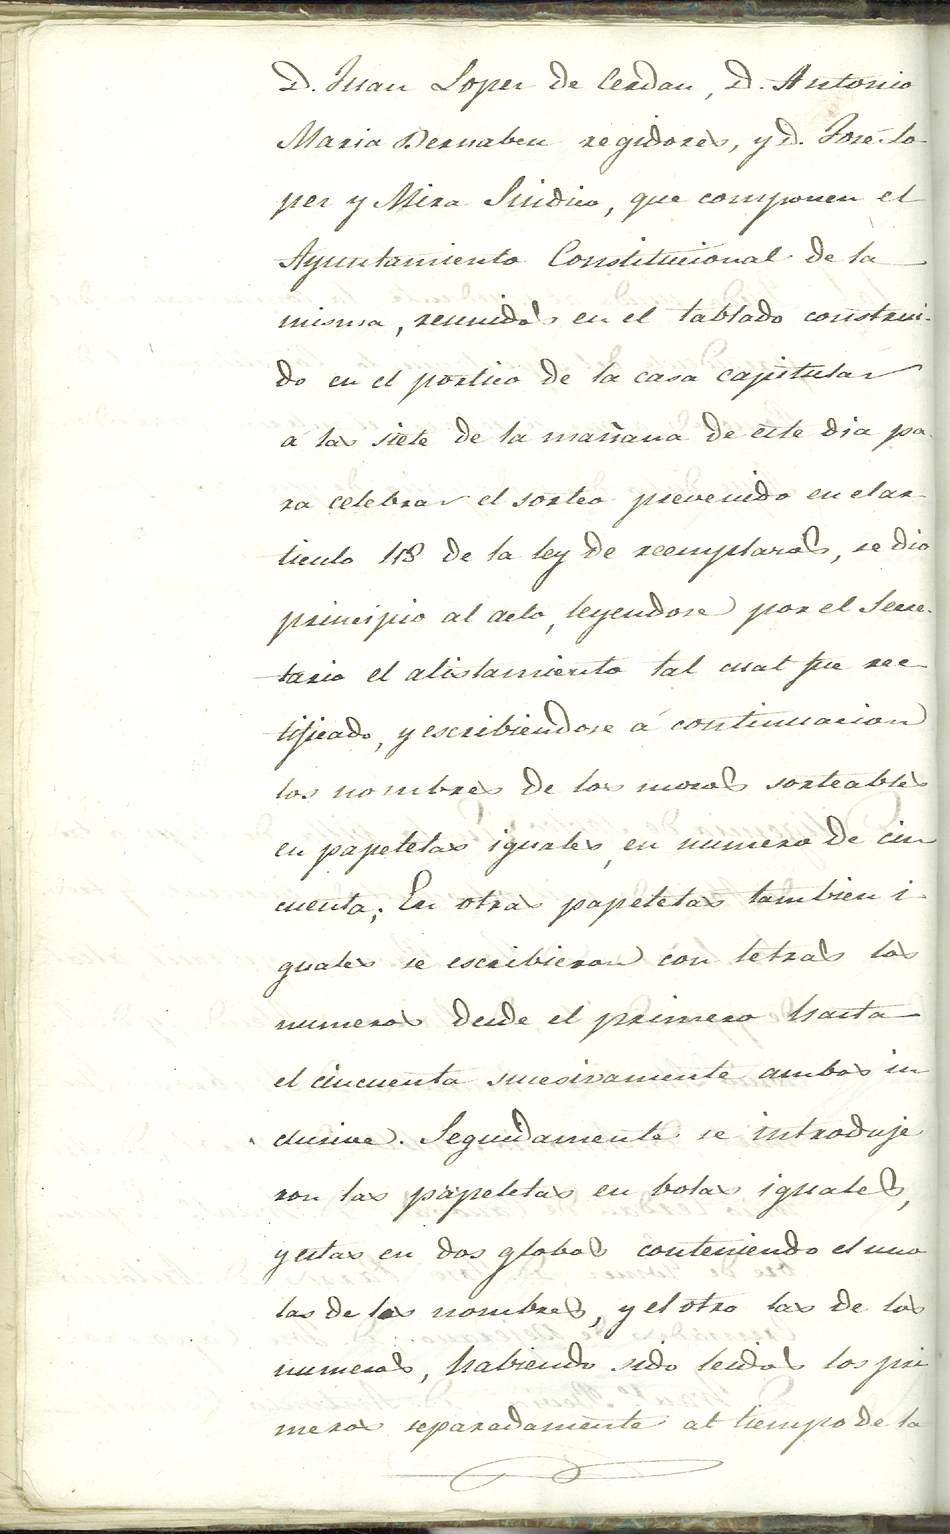 D. Juan Lopez de Cerdan, D. Antonio
Maria Bernabeu regidores, y D. José Lo-
pez y Mira Sindico, que componen el
Ayuntamiento Constitucional de la
misma, reunidos en el tablado construi-
do en el portico de la casa capitular
á las siete de la mañana de este dia pa-
ra celebrar el sorteo prevenido en el ar-
ticulo 48 de la ley de reemplazos, se dio
principio al acto, leyendose por el Secre-
tario el alistamiento tal cual fue rec-
tificado, y escribiendose á continuacion
los nombres de los mozos sorteables
en papeletas iguales, en numero de cin
cuenta; En otras papeletas tambien i-
guales se escribieron con letras los
numeros desde el primero hasta
el cincuenta sucesivamente ambos in
clusive. Seguidamente se introduje
ron las papeletas en bolas iguales,
y estas en dos globos conteniendo el uno
las de los nombres, y el otro las de los
numeros, habiendo sido leidos los pri
meros separadamente al tiempo de la